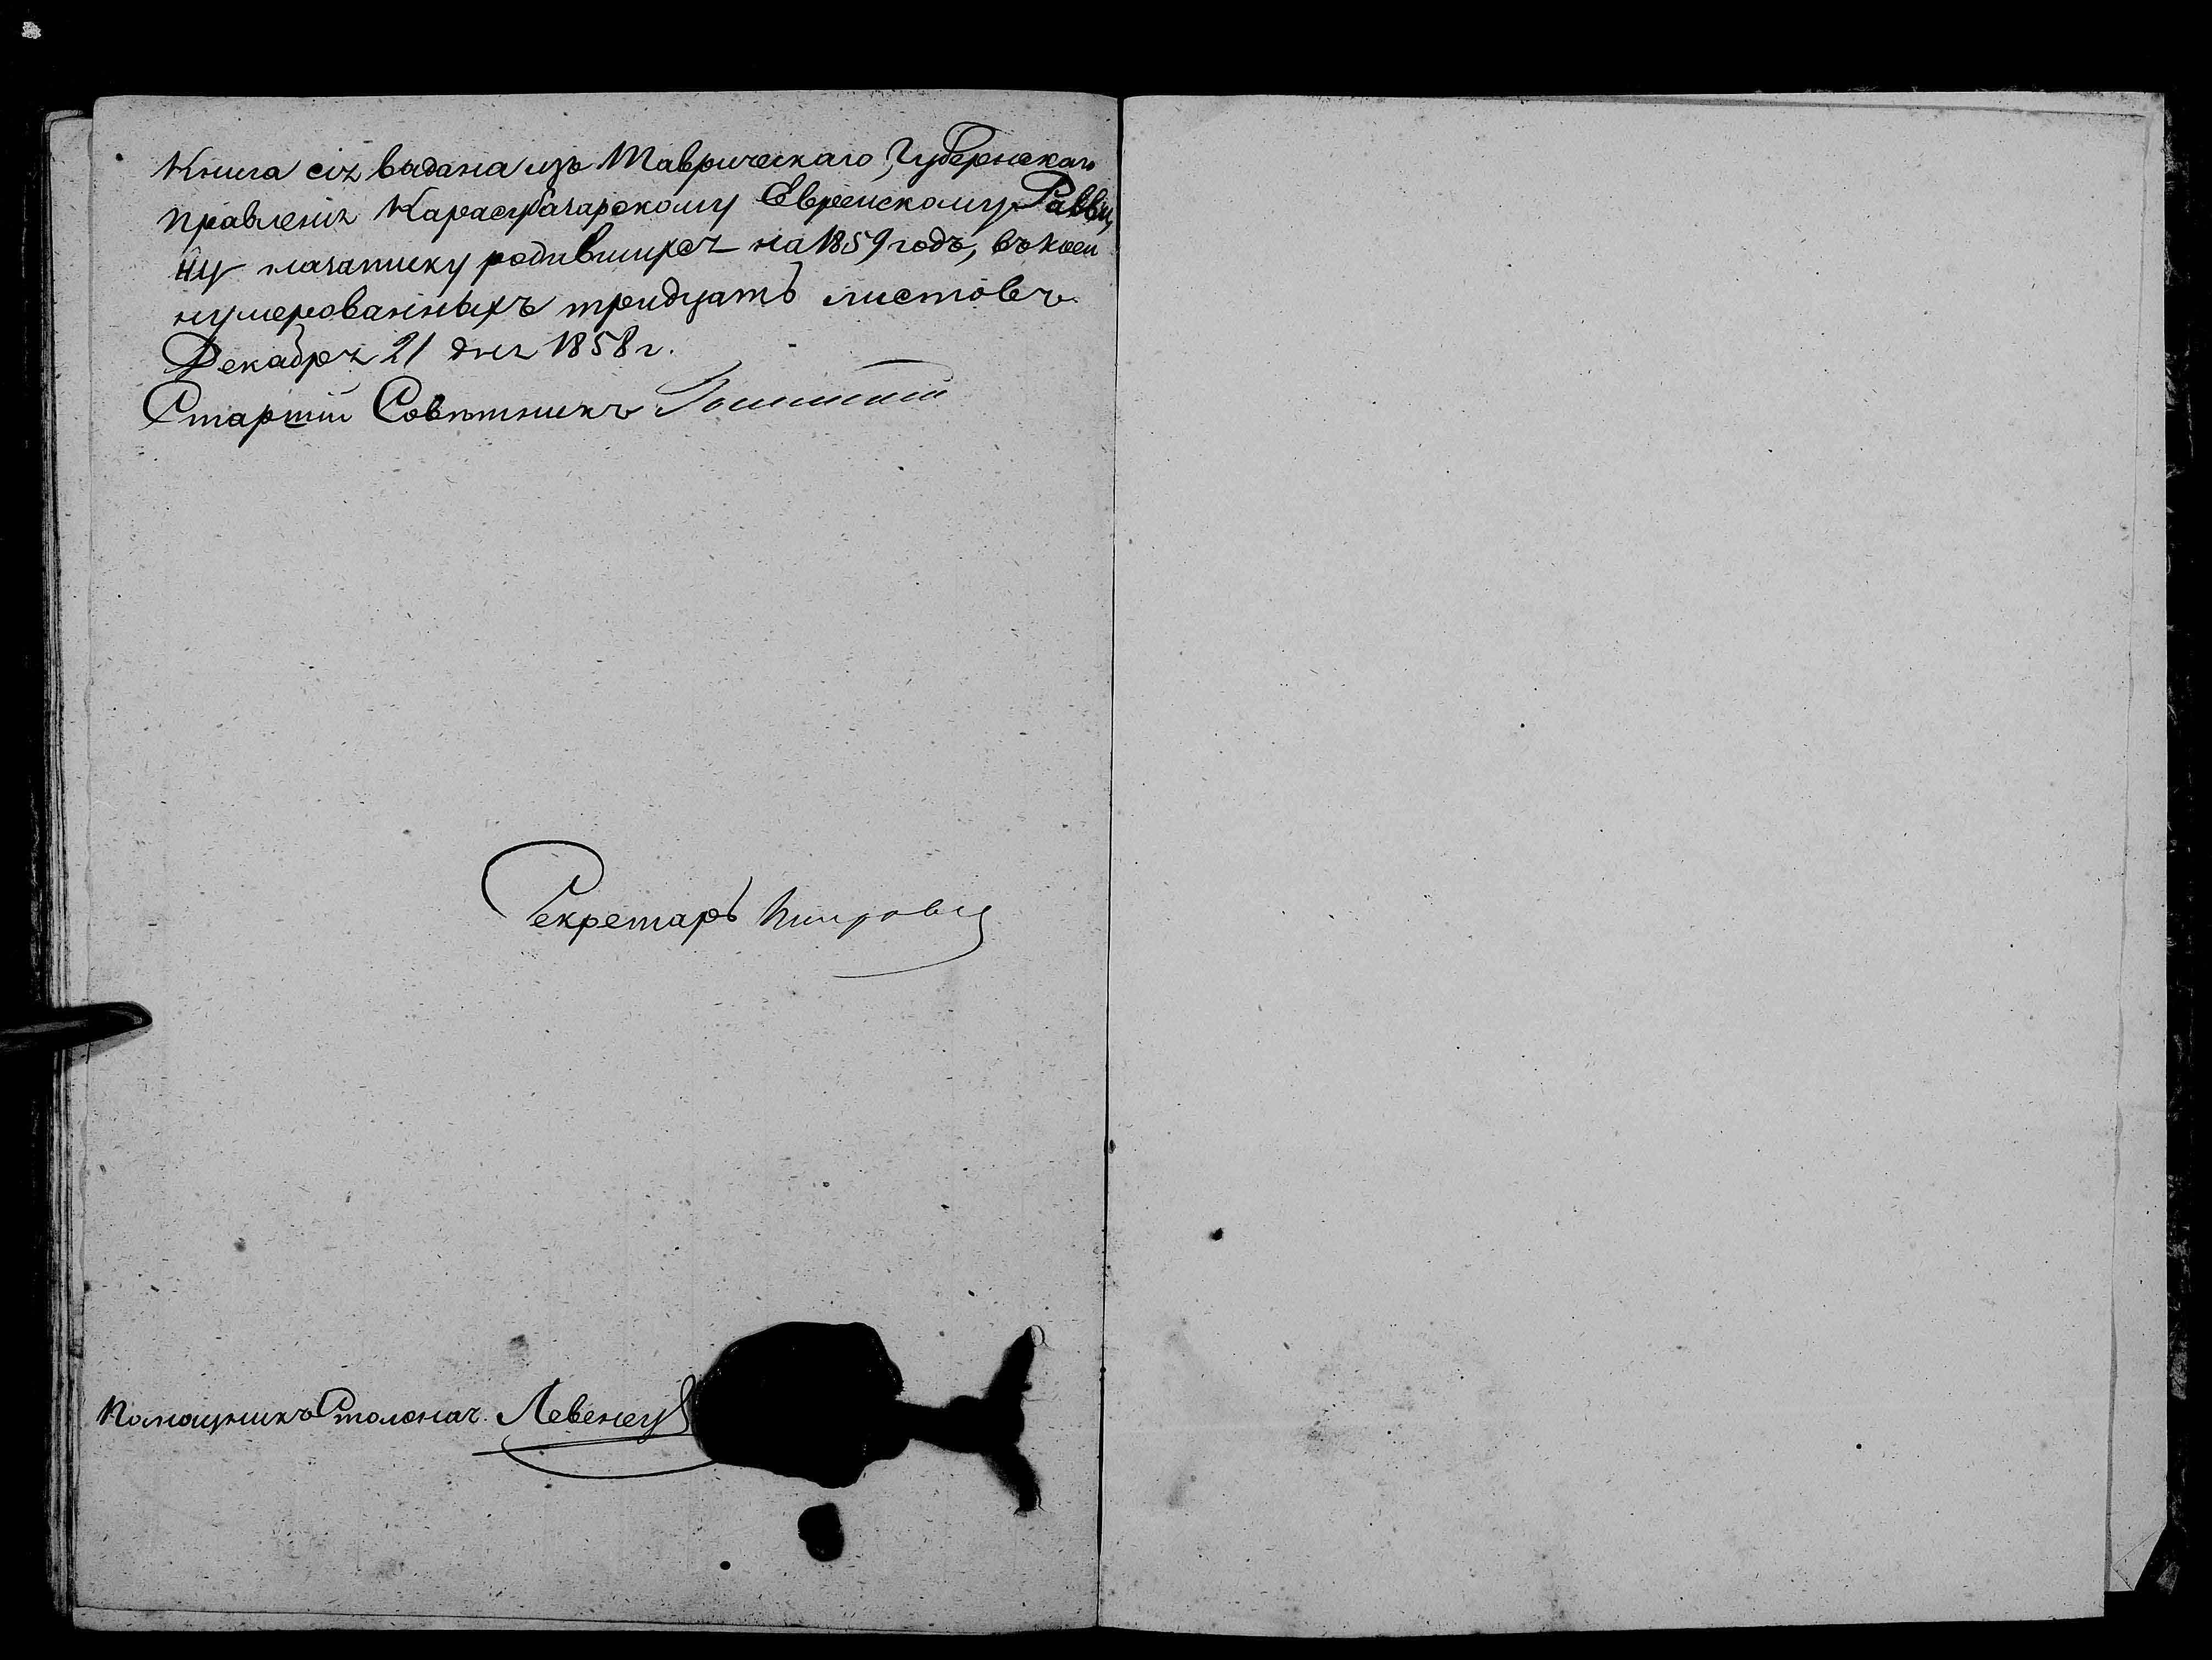 Книга сія выдана изъ Таврическаго Губернскаго
Правленія Карасубазарскому Еврейскому Равви,
ну на записку родившихся на 1859 годъ, въ коей
нумерованныхъ тридцать листовъ.
Декабря 21 дня 1858 г.
Старшій Совѣтникъ
Секретарь
Помощникъ Столонач.